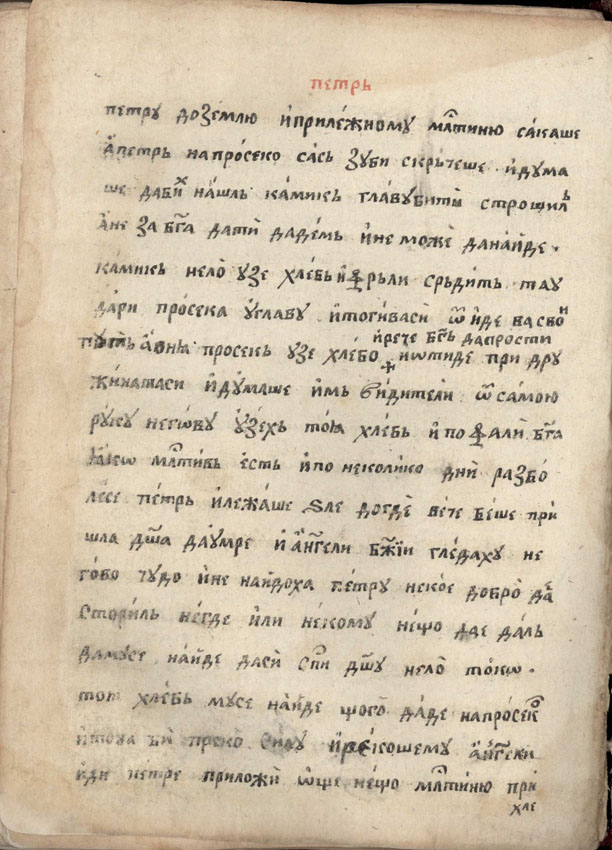 петрь
петру доземлю ѝприлѐжному мл҃тиню са́каше
а҆петрь напросеко сась зуби скръчеше ѝдума
ше даби́х на́шль ка́микь главꙋбиты̀ строши́ль
а҆не за бг҃а дати̇̀ даде́мь ѝне може̇̀ дана́йде ·
ка́микь нело̀ узе хле́бь ѝ фръли срьди́ть тау
да́ри про́сека у҆главу ѝтогиваси ѿи́де васвои
пу́ть а҆ѡнꙗ̀ просекь узе хле́бо ѝрече бг҃ь дапрости
ꙋ҆ ѝѡтиде при дрꙋ
жи́натаси ѝдꙋмаше ѝмь видители ѿ са́мою
рꙋ́кꙋ негѡ́вꙋ у҆зехь то́ꙗ хлѐбь ѝ пофа́ли бг҃а
ꙗ҆кѡ мл҃тивь ѐсть ѝпо неколи́ко дни̇̀ разбо̀
лесе пе́трь ѝлежа́ше ѕле догде̇̀ вече беше при̇̀
шла дш҃а дау́мре ѝ а҆гг҃ели бж҃їи гле́даху не
го́во чудо ѝне найдоха петру неско́е добро̀ да̀е
сторѝль не́где и҆ли не́кому не́що где да́ль
да́мꙋсе на́йде даси̇̀ сп҃и дш҃у нело̀ то́кѡ ·
тоѝ хлѐбь мусе на̀йде щого̀ да́де напросекѡ
ѝтоꙗ ѝ преко силу ѝреко́шему а҆гг҃ели
ѝди пе́тре приложѝ ѡ҆ще не́що мл҃тиню при̇̀
хле